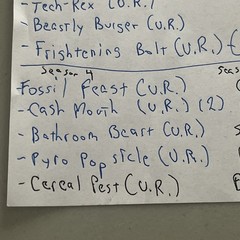 - Tech-Rex (U.R.)
- Beastly Burger (U.R.)
- Frightening Bolt (U.R.)
Season 4
Fossil Feast (U.R.)
- Cash Mouth (U.R.) (2)
- Bathroom Beart (U.R.)
- Pyro Popsicle (U.R.)
- Cereal Pest (U.R.)